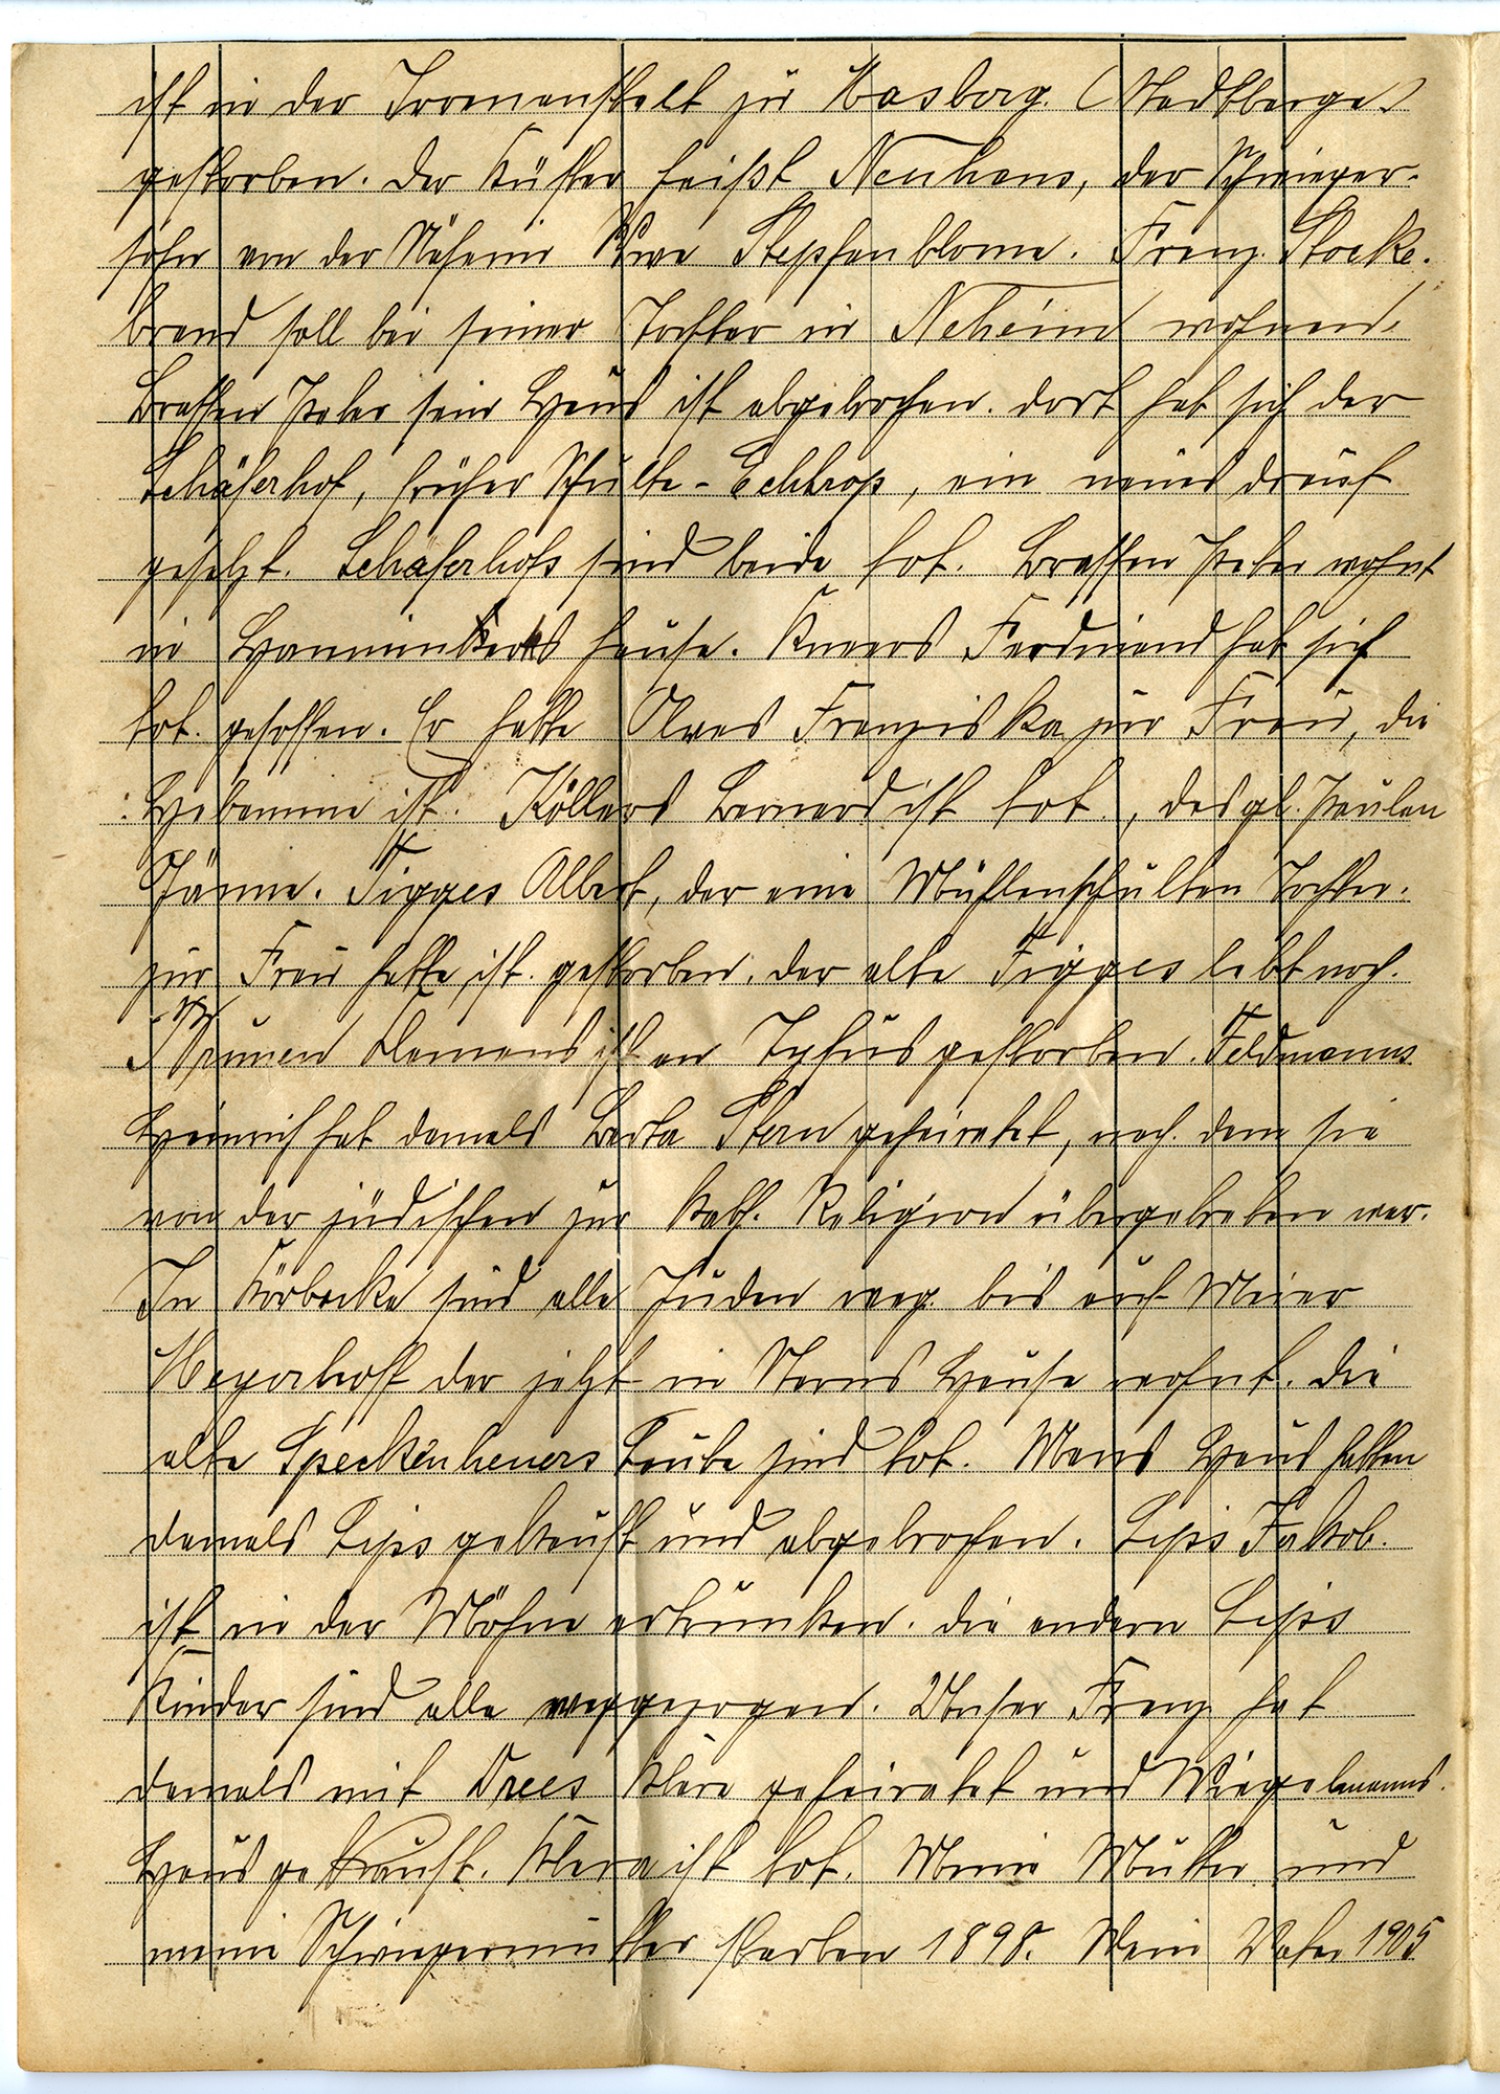 ist in der Irrenanstalt zu Masberg. (Stadtberge)
gestorben. Der Küster heißt Neuhaus, der Schwieger-
sohn von der Näherin Wwe Stephanblome. Franz Stocke-
brand soll bei seiner Tochter in Neheim wohnen.
Peter sein Haus ist abgebrochen. dort hat sich der
Schäferhof, früher Schulte-Echtrop, ein neues drauf
gesetzt. Schäferhofs sind beide tot. Peter wohnt
in Hause. Knaers Ferdinand hat sich
tot gesoffen. Er hatte Alves Franziska zur Frau, die
Hebamme ist. Köllers Bernard ist tot, desgl. Paulen
Jänne. Tigges Albert, der eine Mühlenschulten Tochter
zur Frau hatte, ist gestorben. der alte Tigges lebt noch.
Klemens ist an Tyfus gestorben. Feldmanns
Heinrich hat damals Berta Stern geheiratet, nach dem sie
von der jüdischen zur kath. Religion übergetreten war.
In Körbecke sind alle Juden weg bis auf Meier
Meyerhoff der jetzt in Sterns Hause wohnt. die
alte Speckenheuers Leute sind tot. Haus hatten
damals Lips gekauft und abgebrochen. Lips Jakob
ist in der Möhne ertrunken. die andern Lips
Kinder sind alle weggezogen. Unser Franz hat
damals mit Drees Klara geheiratet und Wiegelmanns
Haus gekauft. Klara ist tot. Meine Mutter und
meine Schwiegermutter starben 1898. Mein Vater 1905